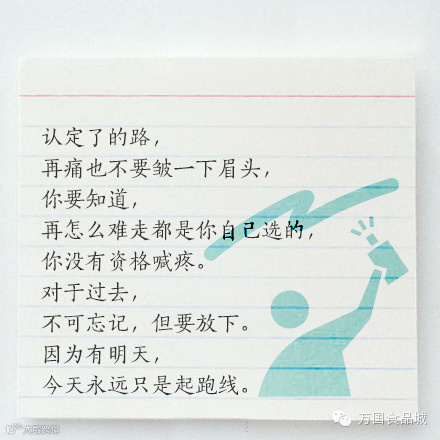 认定了的路，
再痛也不要皱一下眉头，
你要知道，
再怎么难走都是你自己选的，
你没有资格喊疼。
对于过去，
不可忘记，但要放下。
因为有明天，
今天永远只是起跑线。
万国食品城